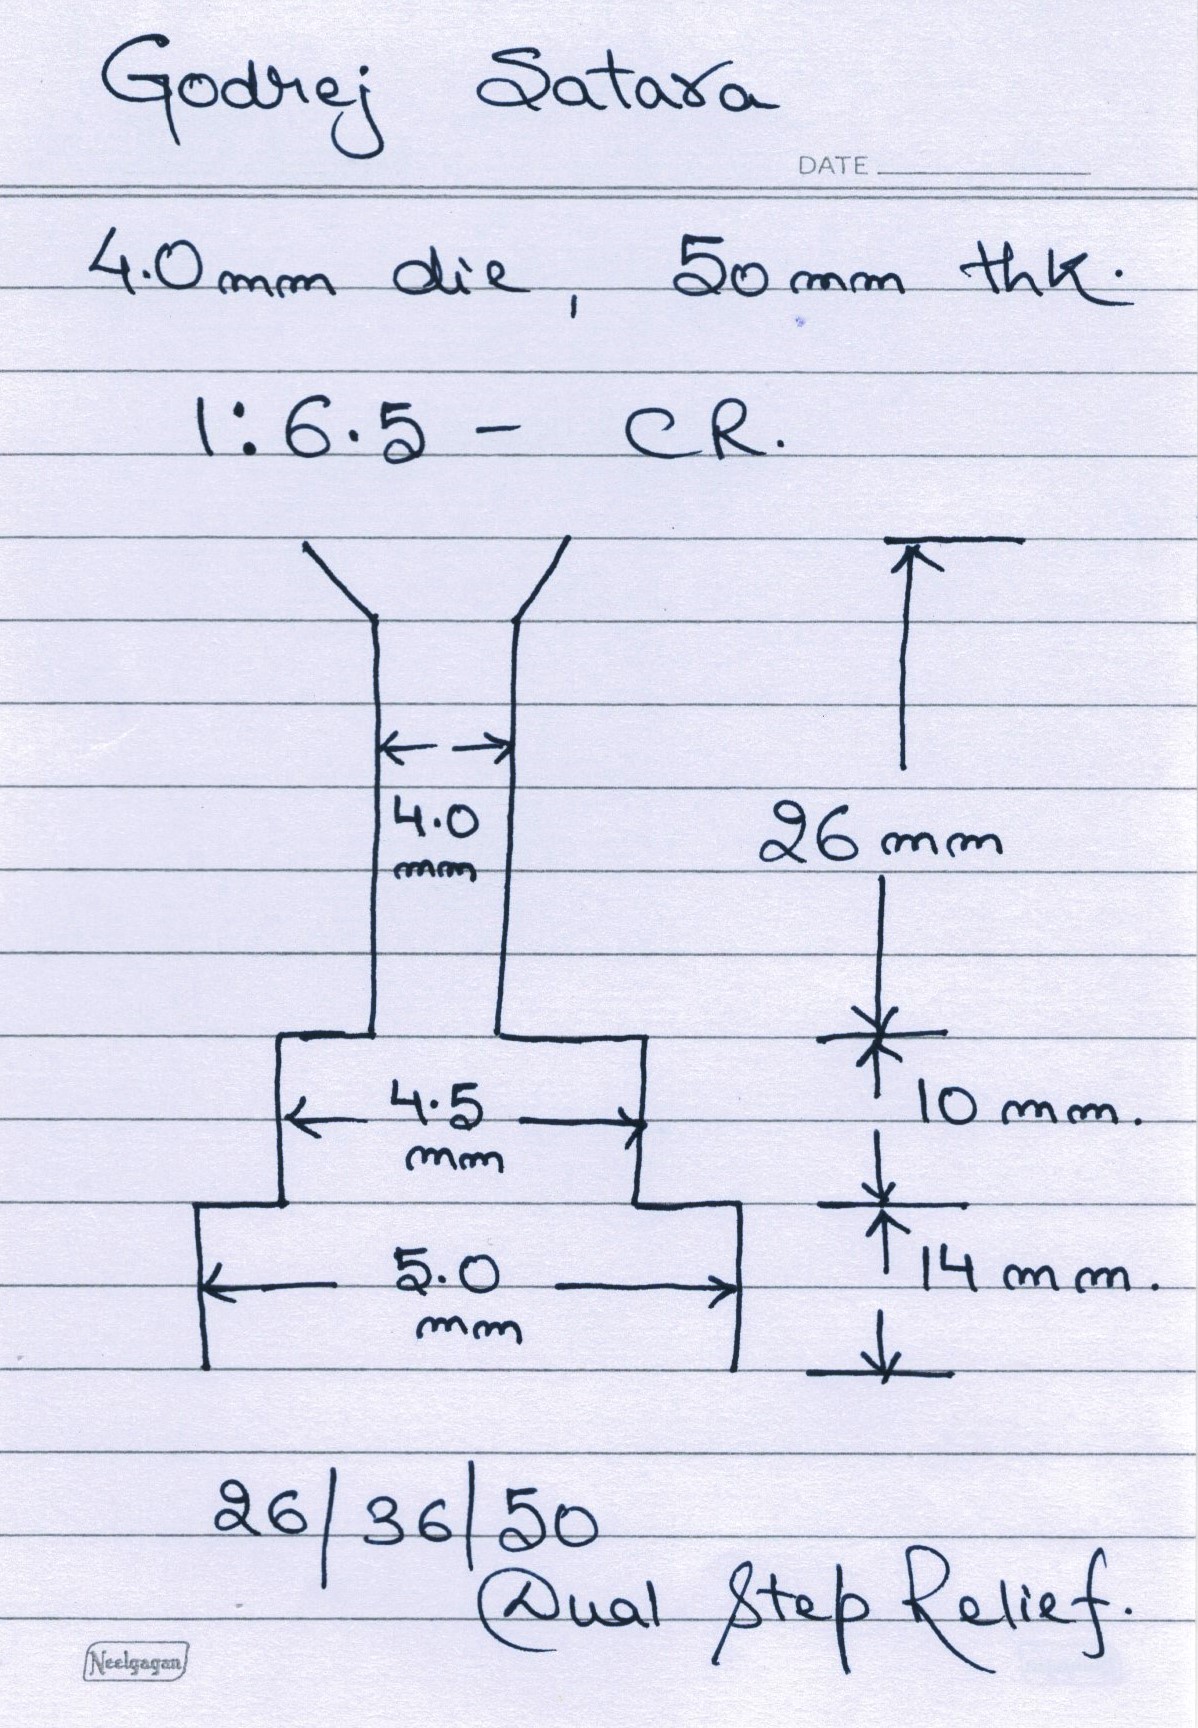 Godrej Satara
DATE
4.0mm die, 50mm thk.
1:6.5 - CR.
4.0
mm
26 mm
4.5
mm
10 mm.
5.0
mm
14 mm.
26/36/50
Dual Step Relief.
Neelgagan